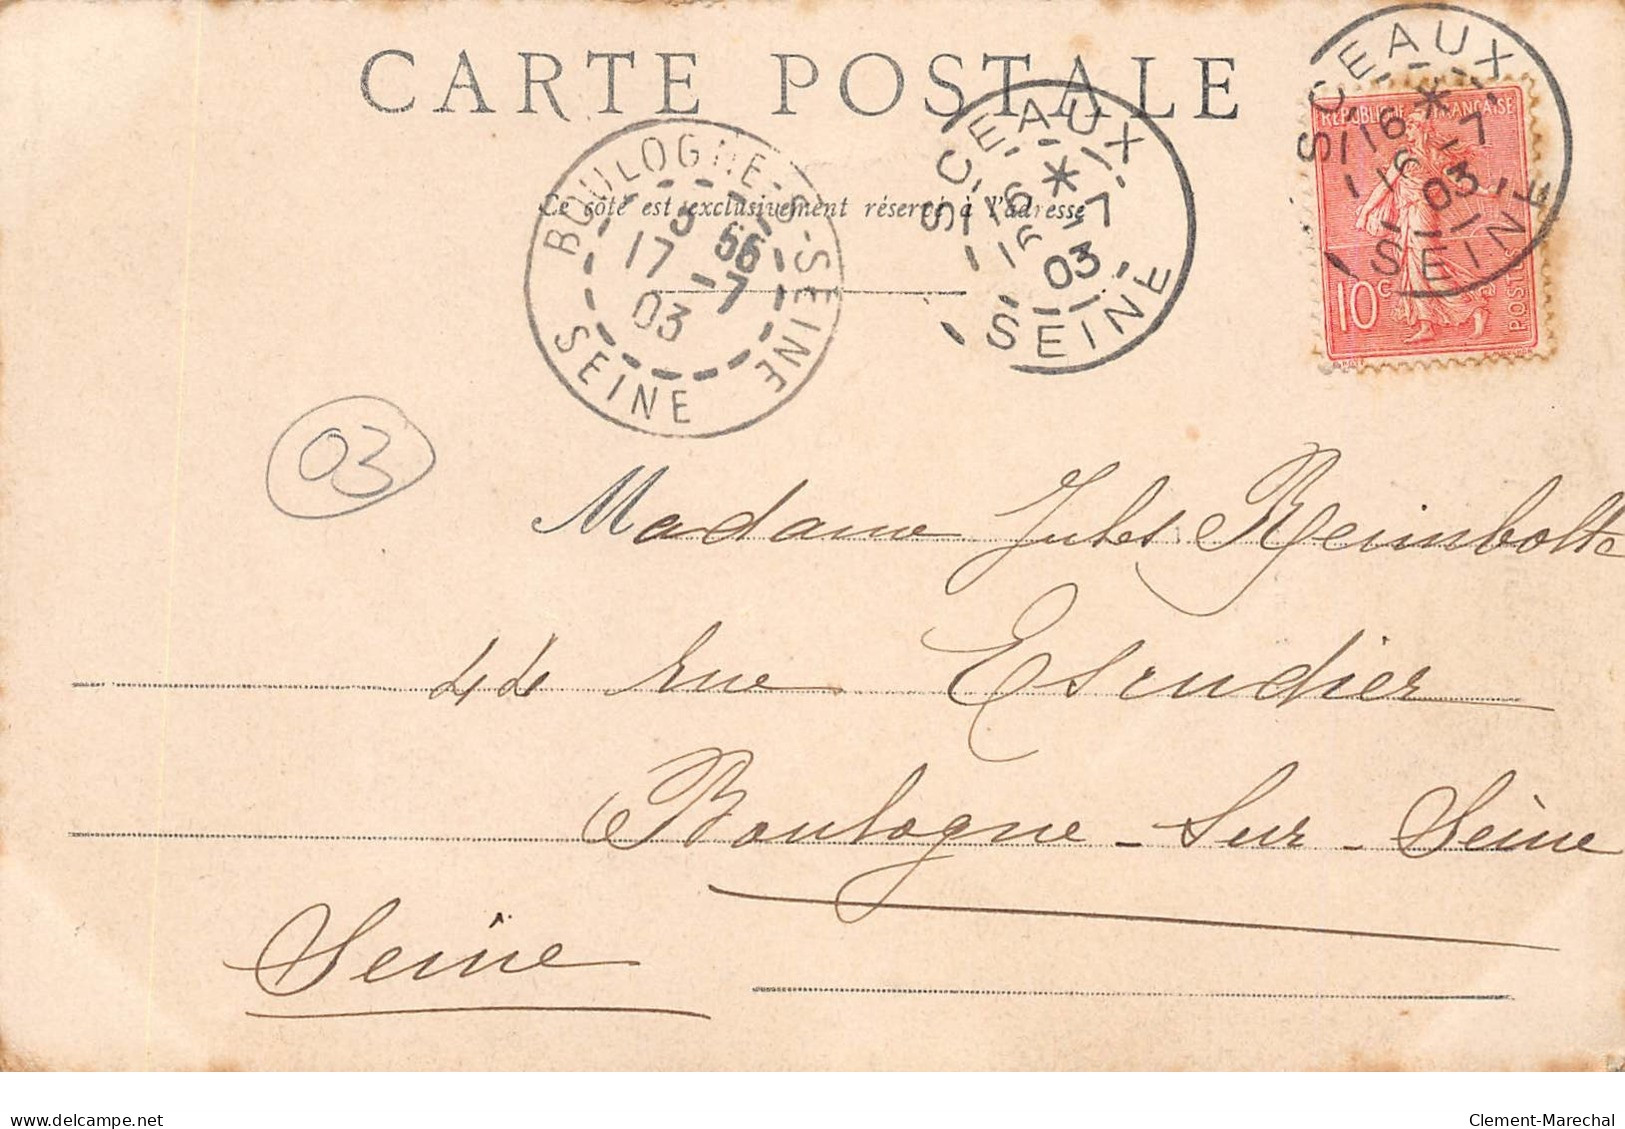 CARTE POSTALE
Ce côté est exclusivement réservé à l'adresse
BOULOGNE-S-SEINE
17 -7
03
SEINE
SCEAUX
16 * -7
16 03
SEINE
SCEAUX
16 * -7
16 03
SEINE
RÉPUBLIQUE FRANÇAISE
10c
POSTES
03
Madame Jules Reimbolte
44 rue Escudier
Boulogne-sur-Seine
Seine
delcampe.net
Clement-Marechal